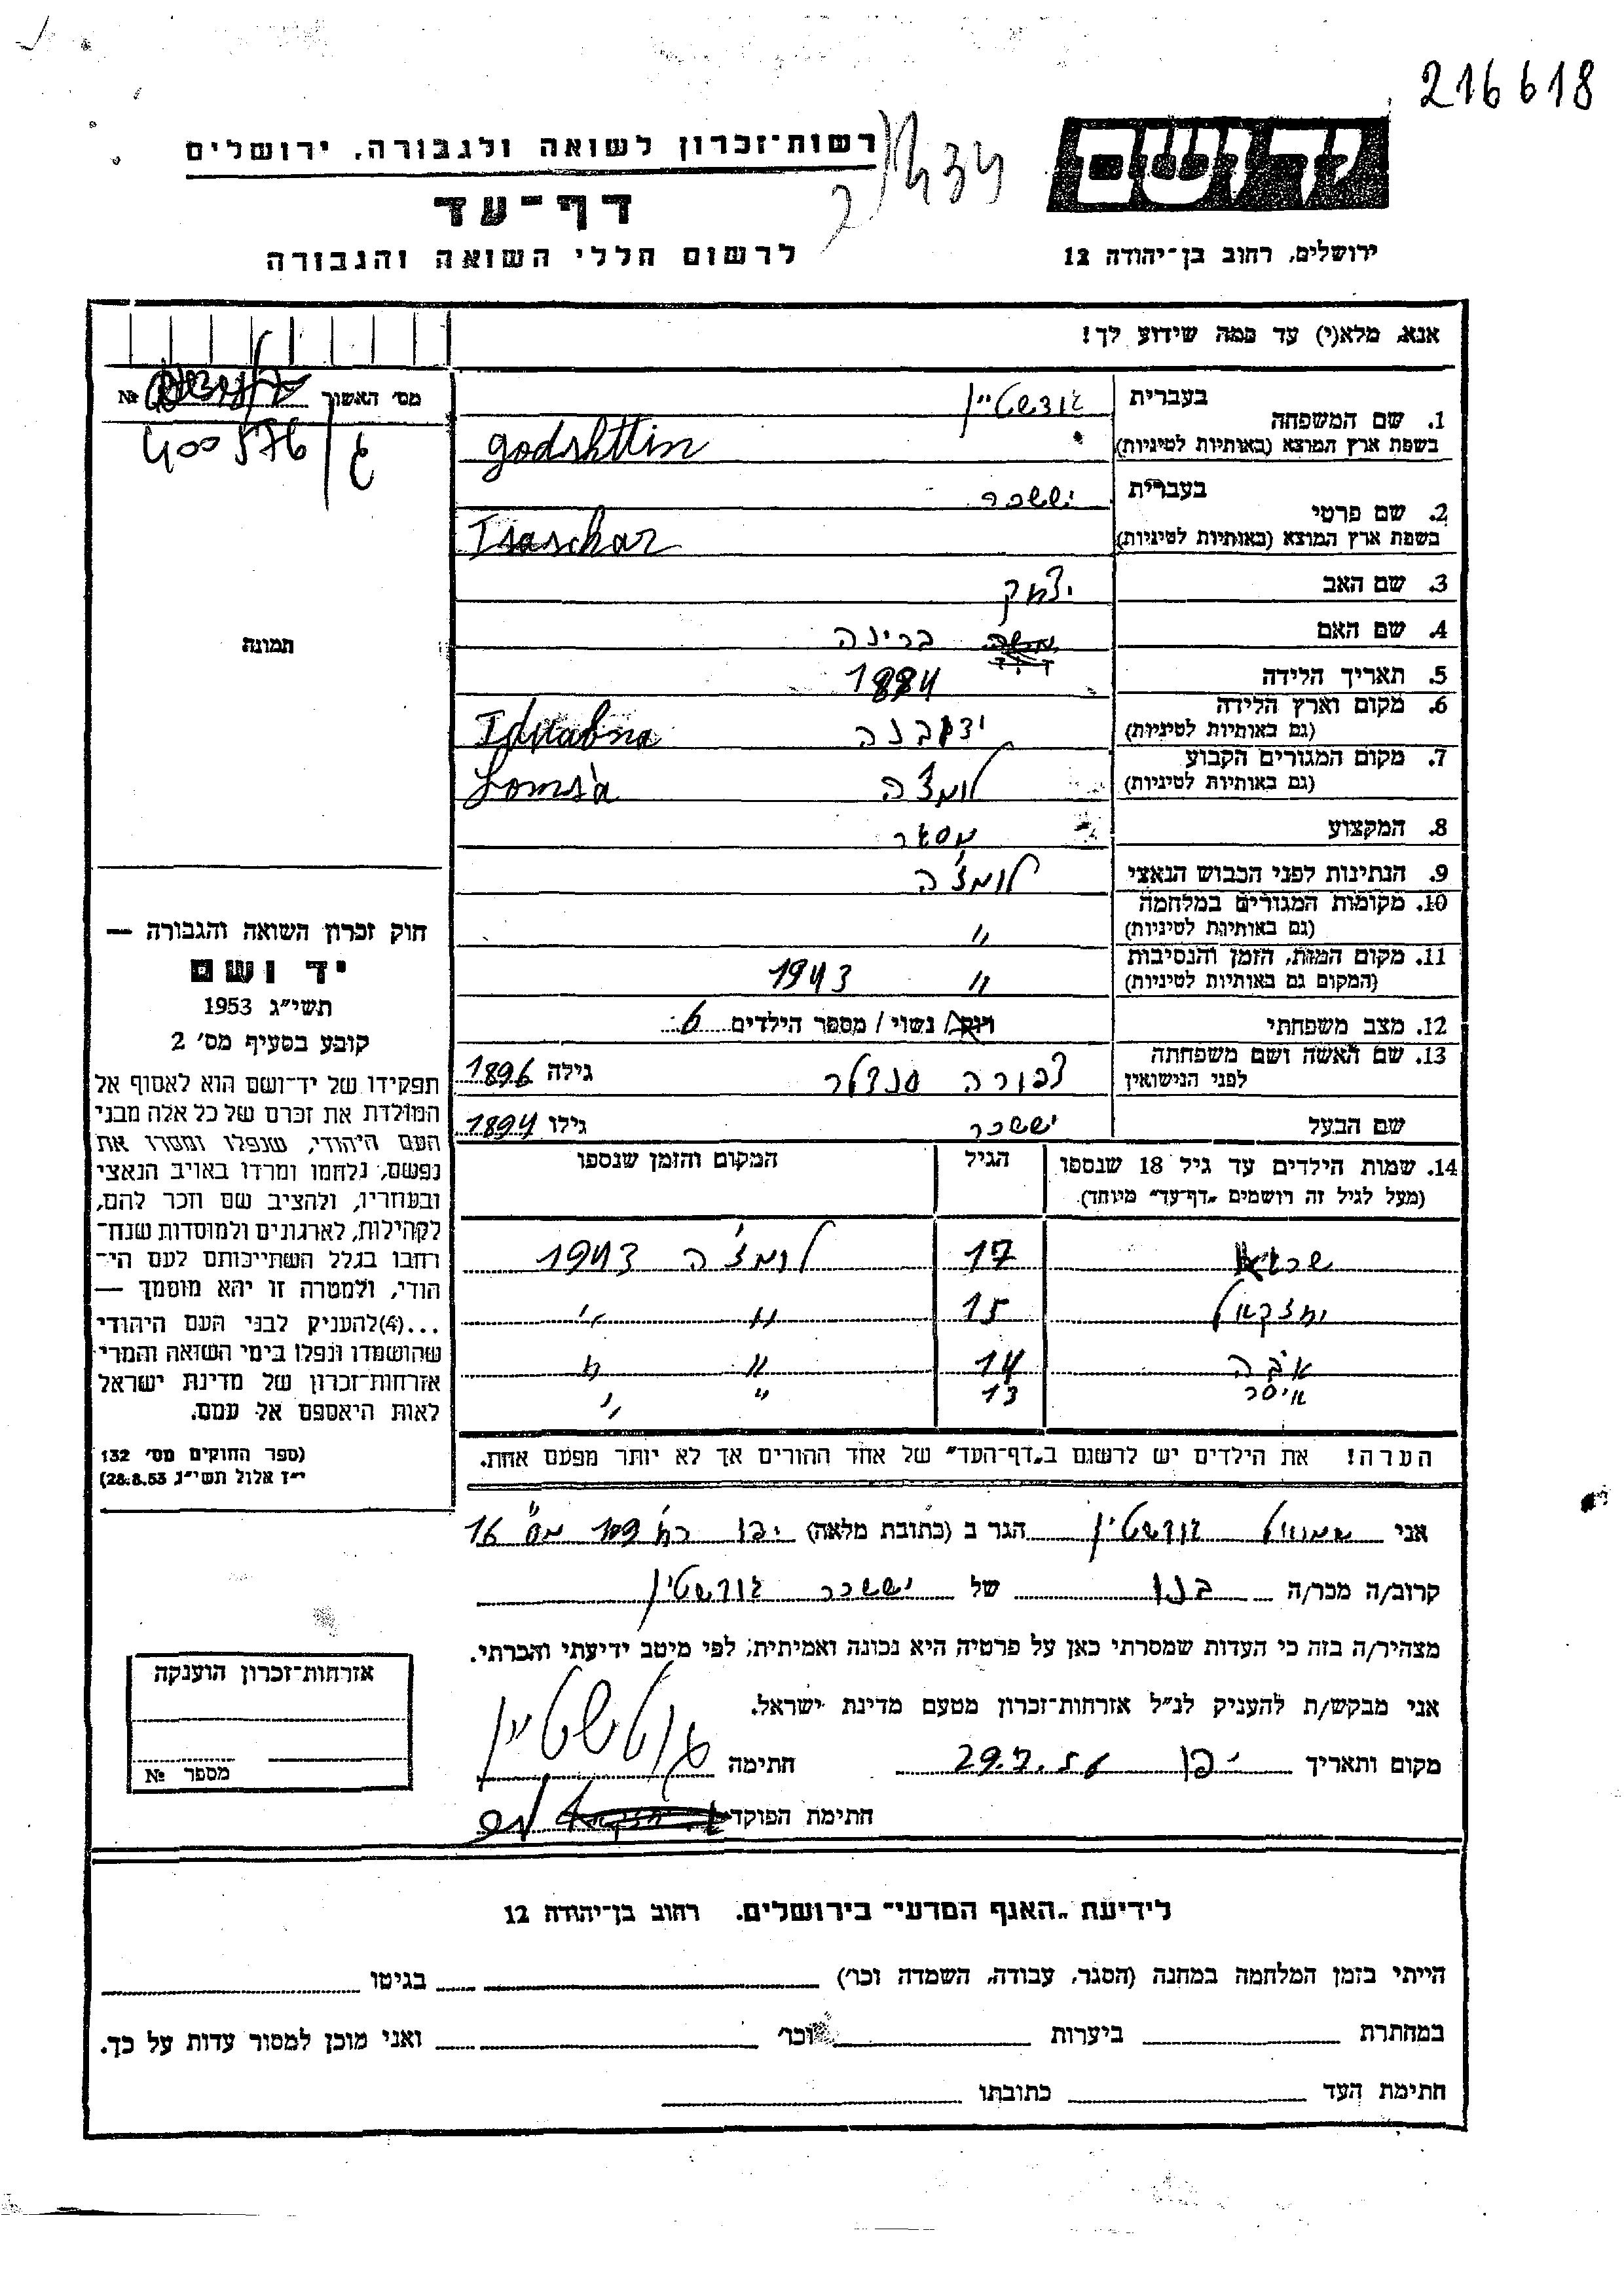 216618
רשות־זכרון לשואה ולגבורה, ירושלים
דף־עד
לרשום חללי השואה והגבורה
יד ושם
ירושלים, רחוב בן־יהודה 12
אנא, מלא(י) עד כמה שידוע לך!
מס' האשור №
400576/
1. שם המשפחה
בעברית גודשטיין
בשפת ארץ המוצא (באותיות לטיניות) godshttin
2. שם פרטי
בעברית יששכר
בשפת ארץ המוצא (באותיות לטיניות) Isaschar
3. שם האב יצחק
4. שם האם ברינה
5. תאריך הלידה 1884
6. מקום וארץ הלידה
(גם באותיות לטיניות)
7. מקום המגורים הקבוע לומז'ה
(גם באותיות לטיניות) Lomsa
8. המקצוע
9. הנתינות לפני הכבוש הנאצי לומז'ה
10. מקומות המגורים במלחמה "
(גם באותיות לטיניות)
11. מקום המות, הזמן והנסיבות " 1943
(המקום גם באותיות לטיניות)
12. מצב משפחתי רווק/ נשוי/ מספר הילדים 6
13. שם האשה ושם משפחתה
לפני הנישואין צפורה סנדלר גילה 1896
שם הבעל יששכר גילו 1894
14. שמות הילדים עד גיל 18 שנספו הגיל המקום והזמן שנספו
(מעל לגיל זה רושמים „דף־עד" מיוחד)
17 לומז'ה 1943
יחזקאל 15 " "
14 " "
איסר 13 " "
הערה! את הילדים יש לרשום ב„דף־העד" של אחד ההורים אך לא יותר מפעם אחת.
תמונה
חוק זכרון השואה והגבורה —
יד ושם
תשי"ג 1953
קובע בסעיף מס' 2
תפקידו של יד־ושם הוא לאסוף אל
המולדת את זכרם של כל אלה מבני
העם היהודי, שנפלו ומסרו את
נפשם, נלחמו ומרדו באויב הנאצי
ובעוזריו, ולהציב שם וזכר להם,
לקהילות, לארגונים ולמוסדות שנח־
רבו בגלל השתייכותם לעם הי־
הודי, ולמטרה זו יהא מוסמך —
...(4) להעניק לבני העם היהודי
שהושמדו ונפלו בימי השואה והמרי
אזרחות־זכרון של מדינת ישראל
לאות היאספם אל עמם.
(ספר החוקים מס' 132
י"ז אלול תשי"ג 28.8.53)
אני שמואל גודשטיין הגר ב (כתובת מלאה) יפו רח' 109 מס' 16
קרוב/ה מכר/ה בנו של יששכר גודשטיין
מצהיר/ה בזה כי העדות שמסרתי כאן על פרטיה היא נכונה ואמיתית, לפי מיטב ידיעתי והכרתי.
אני מבקש/ת להעניק לנ"ל אזרחות־זכרון מטעם מדינת ישראל.
מקום ותאריך יפו חתימה
חתימת הפוקד
אזרחות־זכרון הוענקה
מספר №
לידיעת „האגף המדעי" בירושלים, רחוב בן־יהודה 12
הייתי בזמן המלחמה במחנה (הסגר, עבודה, השמדה וכו') בגיטו
במחתרת ביערות וכו' ואני מוכן למסור עדות על כך.
חתימת העד כתובתו